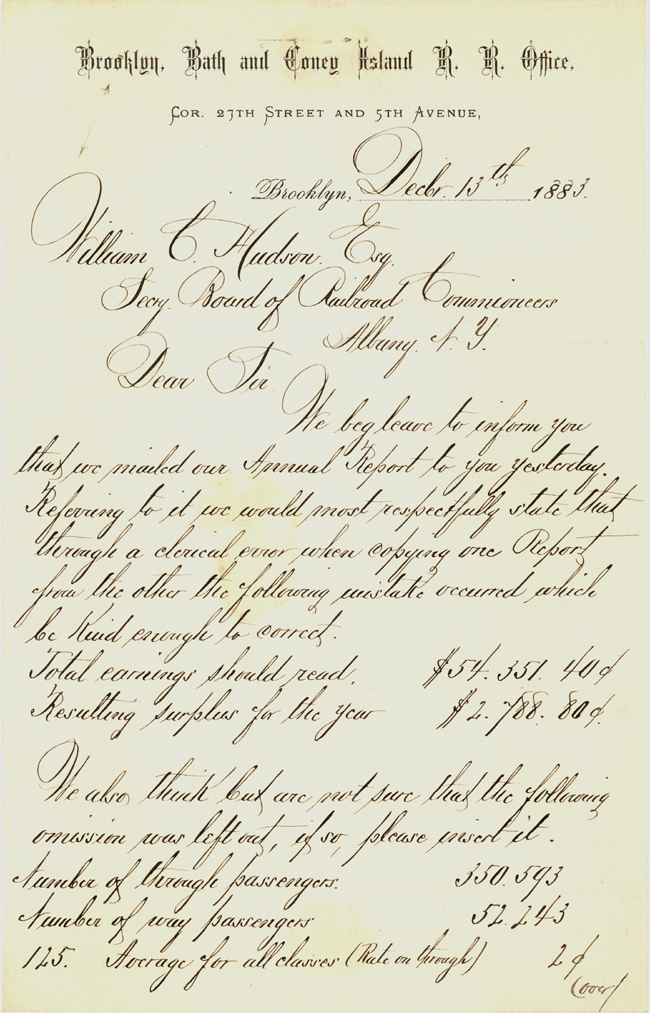 Brooklyn, Bath and Coney Island R. R. Office,
COR. 27TH STREET AND 5TH AVENUE,
Brooklyn, Decbr. 13th 1883.
William C. Hudson. Esq.
Secry. Board of Railroad Commioneers
Albany. N. Y.
Dear Sir.
We beg leave to inform you
that we mailed our Annual Report to you yesterday.
Referring to it we would most respectfully state that
through a clerical error when copying one Report
from the other the following mistake occurred which
be kind enough to correct.
Total earnings should read. $54. 351. 40¢
Resulting surplus for the year $2. 788. 80¢.
We also think but are not sure that the following
omission was left out, if so, please insert it.
Number of through passengers. 350.593
Number of way passengers 52.243
125. Average for all classes (Rate on through) 2¢
(over)